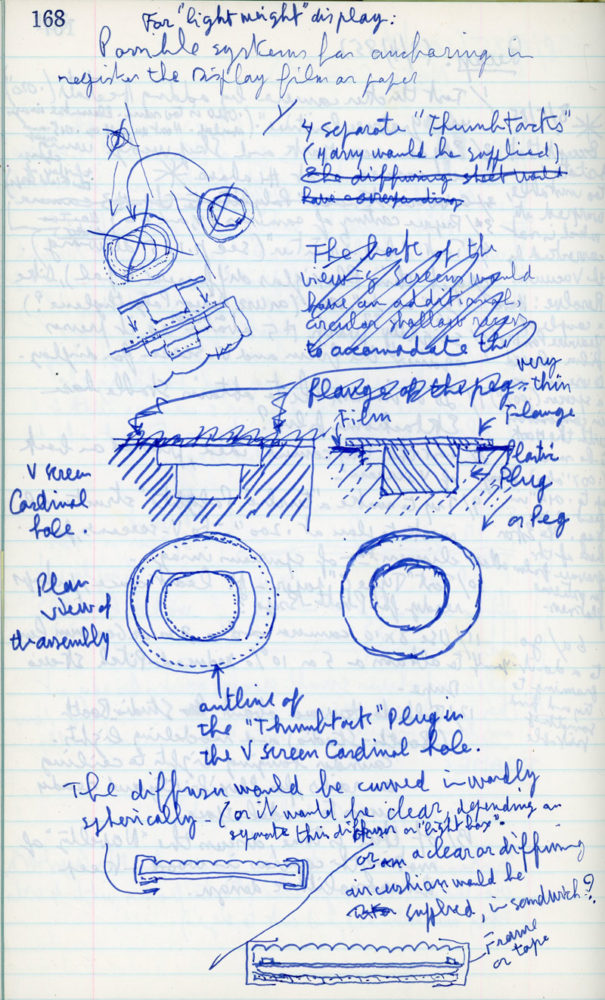 168
For "light weight" display:
Possible systems for anchoring in
register the display film or paper
1/
4 separate "Thumbtacks"
(Many would be supplied)
The diffusing sheet would
have corresponding
The back of the
viewing screen would
have an additional
circular shallow recess
to accomodate the
flange of the peg = very thin
Film
Flange
Plastic
Plug
or Peg
V screen
Cardinal
hole
Plan
view of
the assembly
outline of
the "Thumbtack" Plug in
the V screen Cardinal hole.
The diffuser would be curved inwardly
spherically - (or it would be clear, depending on
separate this diffuser or "light box".
or a clear or diffusing
air cushion would be
supplied, in sandwich?
Frame
or tape